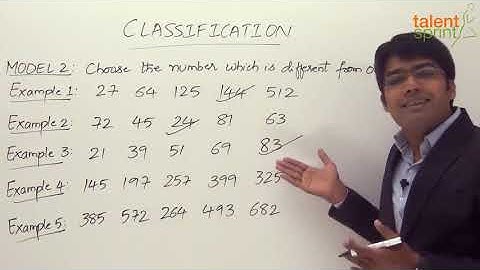 CLASSIFICATION
talent
sprint
MODEL 2: Choose the number which is different from
Example 1: 27 64 125 144 512
Example 2: 72 45 24 81 63
Example 3: 21 39 51 69 83
Example 4: 145 197 257 399 325
Example 5: 385 572 264 493 682